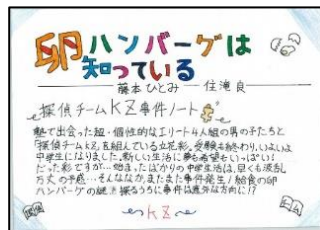 卵ハンバーグは
知っている
藤本ひとみ 住滝良
探偵チームKZ事件ノート
塾で出会った超・個性的なエリート4人組の男の子たちと
「探偵チームKZ」を組んでいる立花彩。受験も終わり、いよいよ
中学生になりました。新しい生活に夢も希望もいっぱい!
だった彩ですが…始まったばかりの中学生活は、早くも波乱
万丈の予感…そんななか、またまた事件発生!給食の卵
ハンバーグの謎を探るうちに事件は意外な方向に!?
KZ